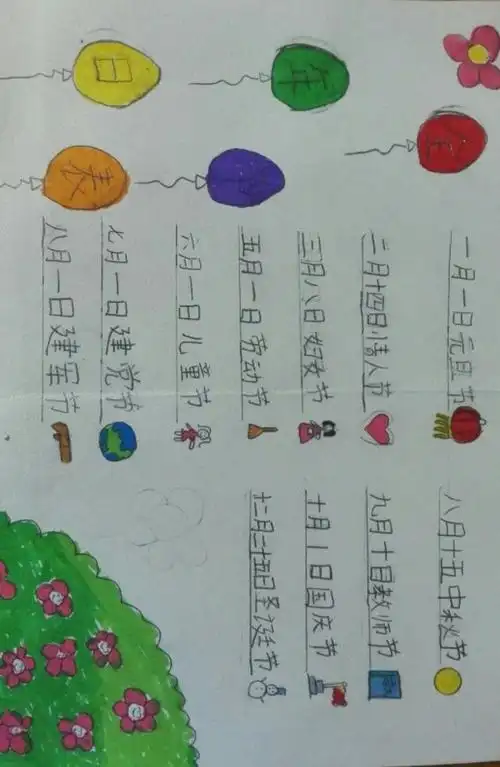 全
年
节
日
表
一月一日元旦节
二月十四日情人节
三月八日妇女节
五月一日劳动节
六月一日儿童节
七月一日建党节
八月一日建军节
八月十五中秋节
九月十日教师节
十月1日国庆节
十二月二十五日圣诞节